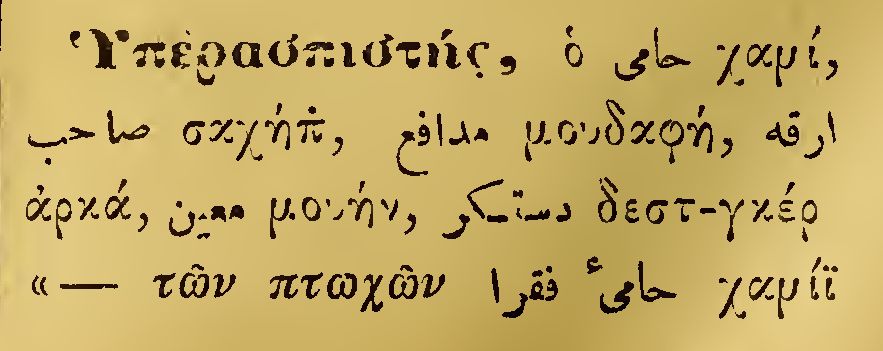 Ὑπερασπιστής, ὁ حامی χαμί,
صاحب σαχήπ̇, مدافع μουδαφή, ارقه
ἀρκά, معین μουήν, دستكر δεστ-γκέρ
«— τῶν πτωχῶν حامیٔ فقرا χαμίϊ